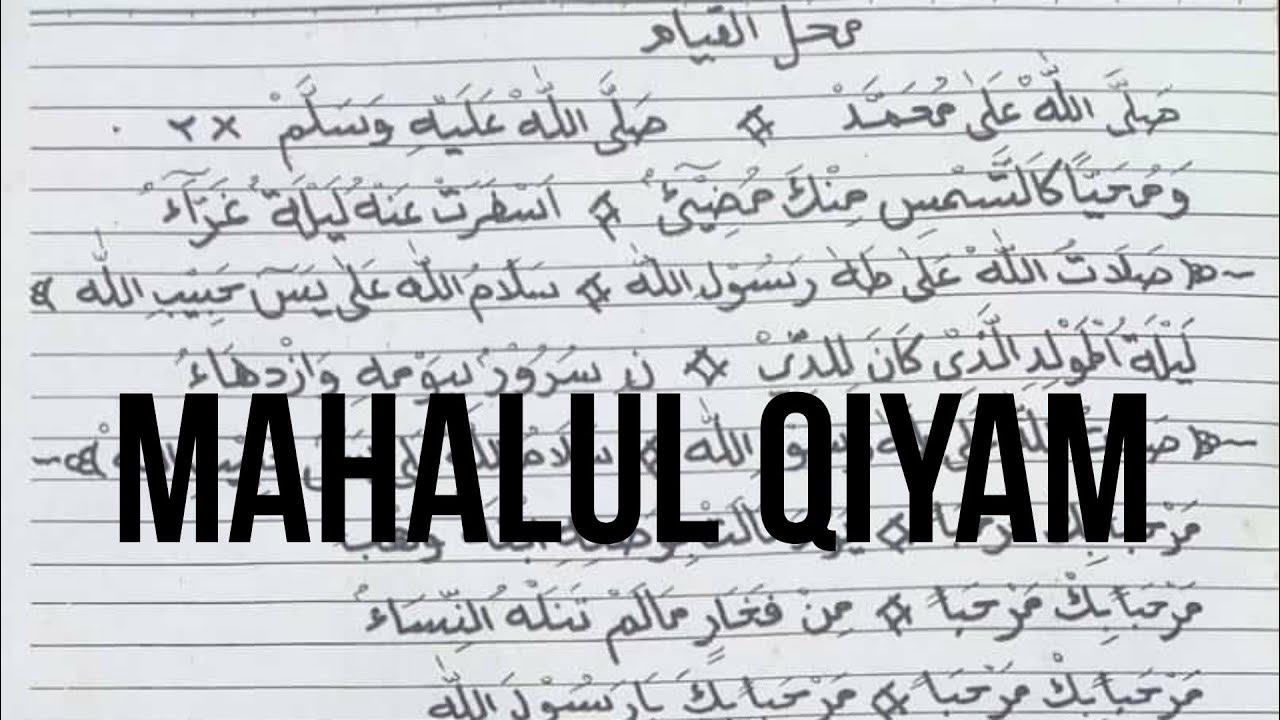 محل القيام
صَلَّى اللّٰهْ عَلٰى مُحَمَّدْ ۞ صَلَّى اللّٰهْ عَلَيْهِ وَسَلَّمْ ×٢
وَمُحَيًّا كَالشَّمْسِ مِنْكَ مُضِيْئٌ ۞ اَسْطَرَتْ عَنْهُ لَيْلَةٌ غَرَّآءُ
صَلَاتُ اللّٰهْ عَلٰى طٰهٰ رَسُوْلِ اللّٰهْ ۞ سَلَامُ اللّٰه عَلٰى يٰسٓ حَبِيْبِ اللّٰه
لَيْلَةُ الْمَوْلِدِ الَّذِىْ كَانَ لِلدِّيْ ۞ نِ سُرُوْرٌ بِيَوْمِهِ وَازْدِهَاءُ
اللّٰه ۞ سَلَامُ
MAHALUL QIYAM
مَرْحَبًا بِكْ مَرْحَبًا ۞
مَرْحَبًا بِكْ مَرْحَبًا ۞ مِنْ فَخَارٍ مَالَمْ تَنَلْهُ النِّسَاءُ
مَرْحَبًا بِكْ مَرْحَبًا ۞ مَرْحَبًا بِكَ يَا رَسُوْلَ اللّٰه